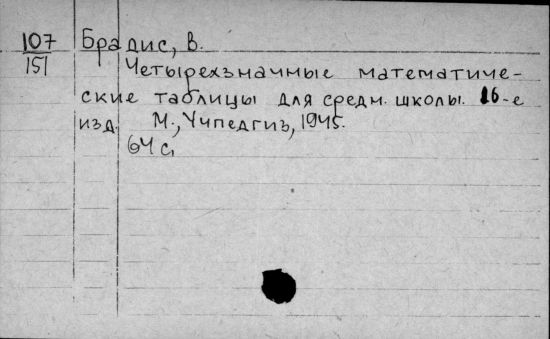 107 Брадис, В.
151 Четырехзначные математиче-
ские таблицы для средн. школы. 16-е
изд. М., Учпедгиз, 1945.
64 с.